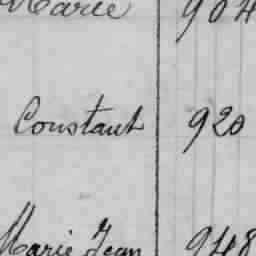 Marie 904
Constant 920
Marie Jean 948